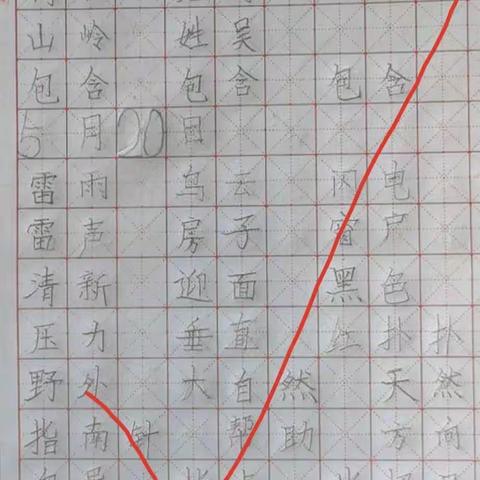 山岭 姓吴
包含 包含 包含
5月20日
雷雨 乌云 闪电
雷声 房子 窗户
清新 迎面 黑色
压力 垂直 红扑扑
野外 大自然 天然
指南针 帮助 方向